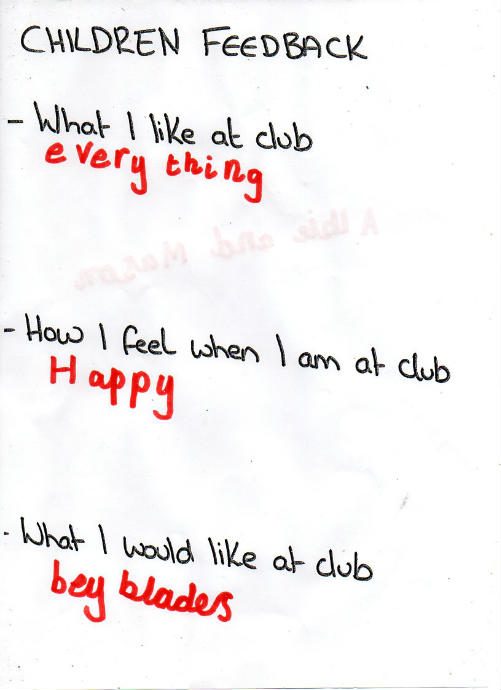 CHILDREN FEEDBACK
- What I like at club
every thing
- How I feel when I am at club
Happy
- What I would like at club
bey blades